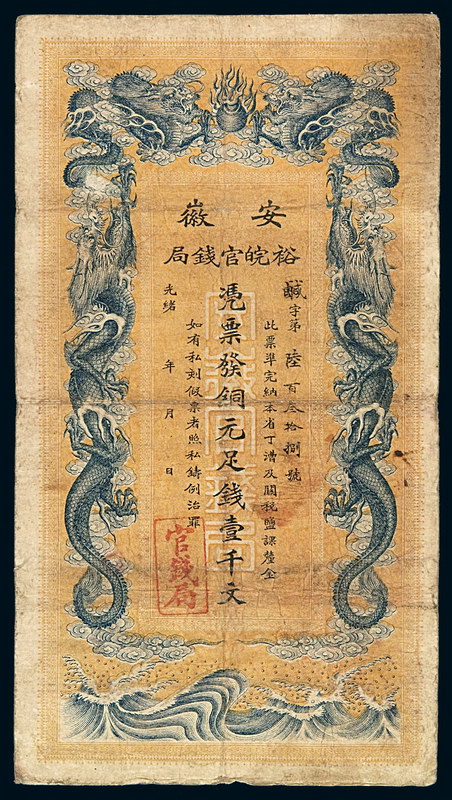 安徽
裕皖官錢局
鹹字第陸百叁拾捌號
此票準完納本省丁漕及關稅鹽課釐金
憑票發銅元足錢壹千文
如有私刻假票者照私鑄例治罪
光緒 年 月 日
官錢局